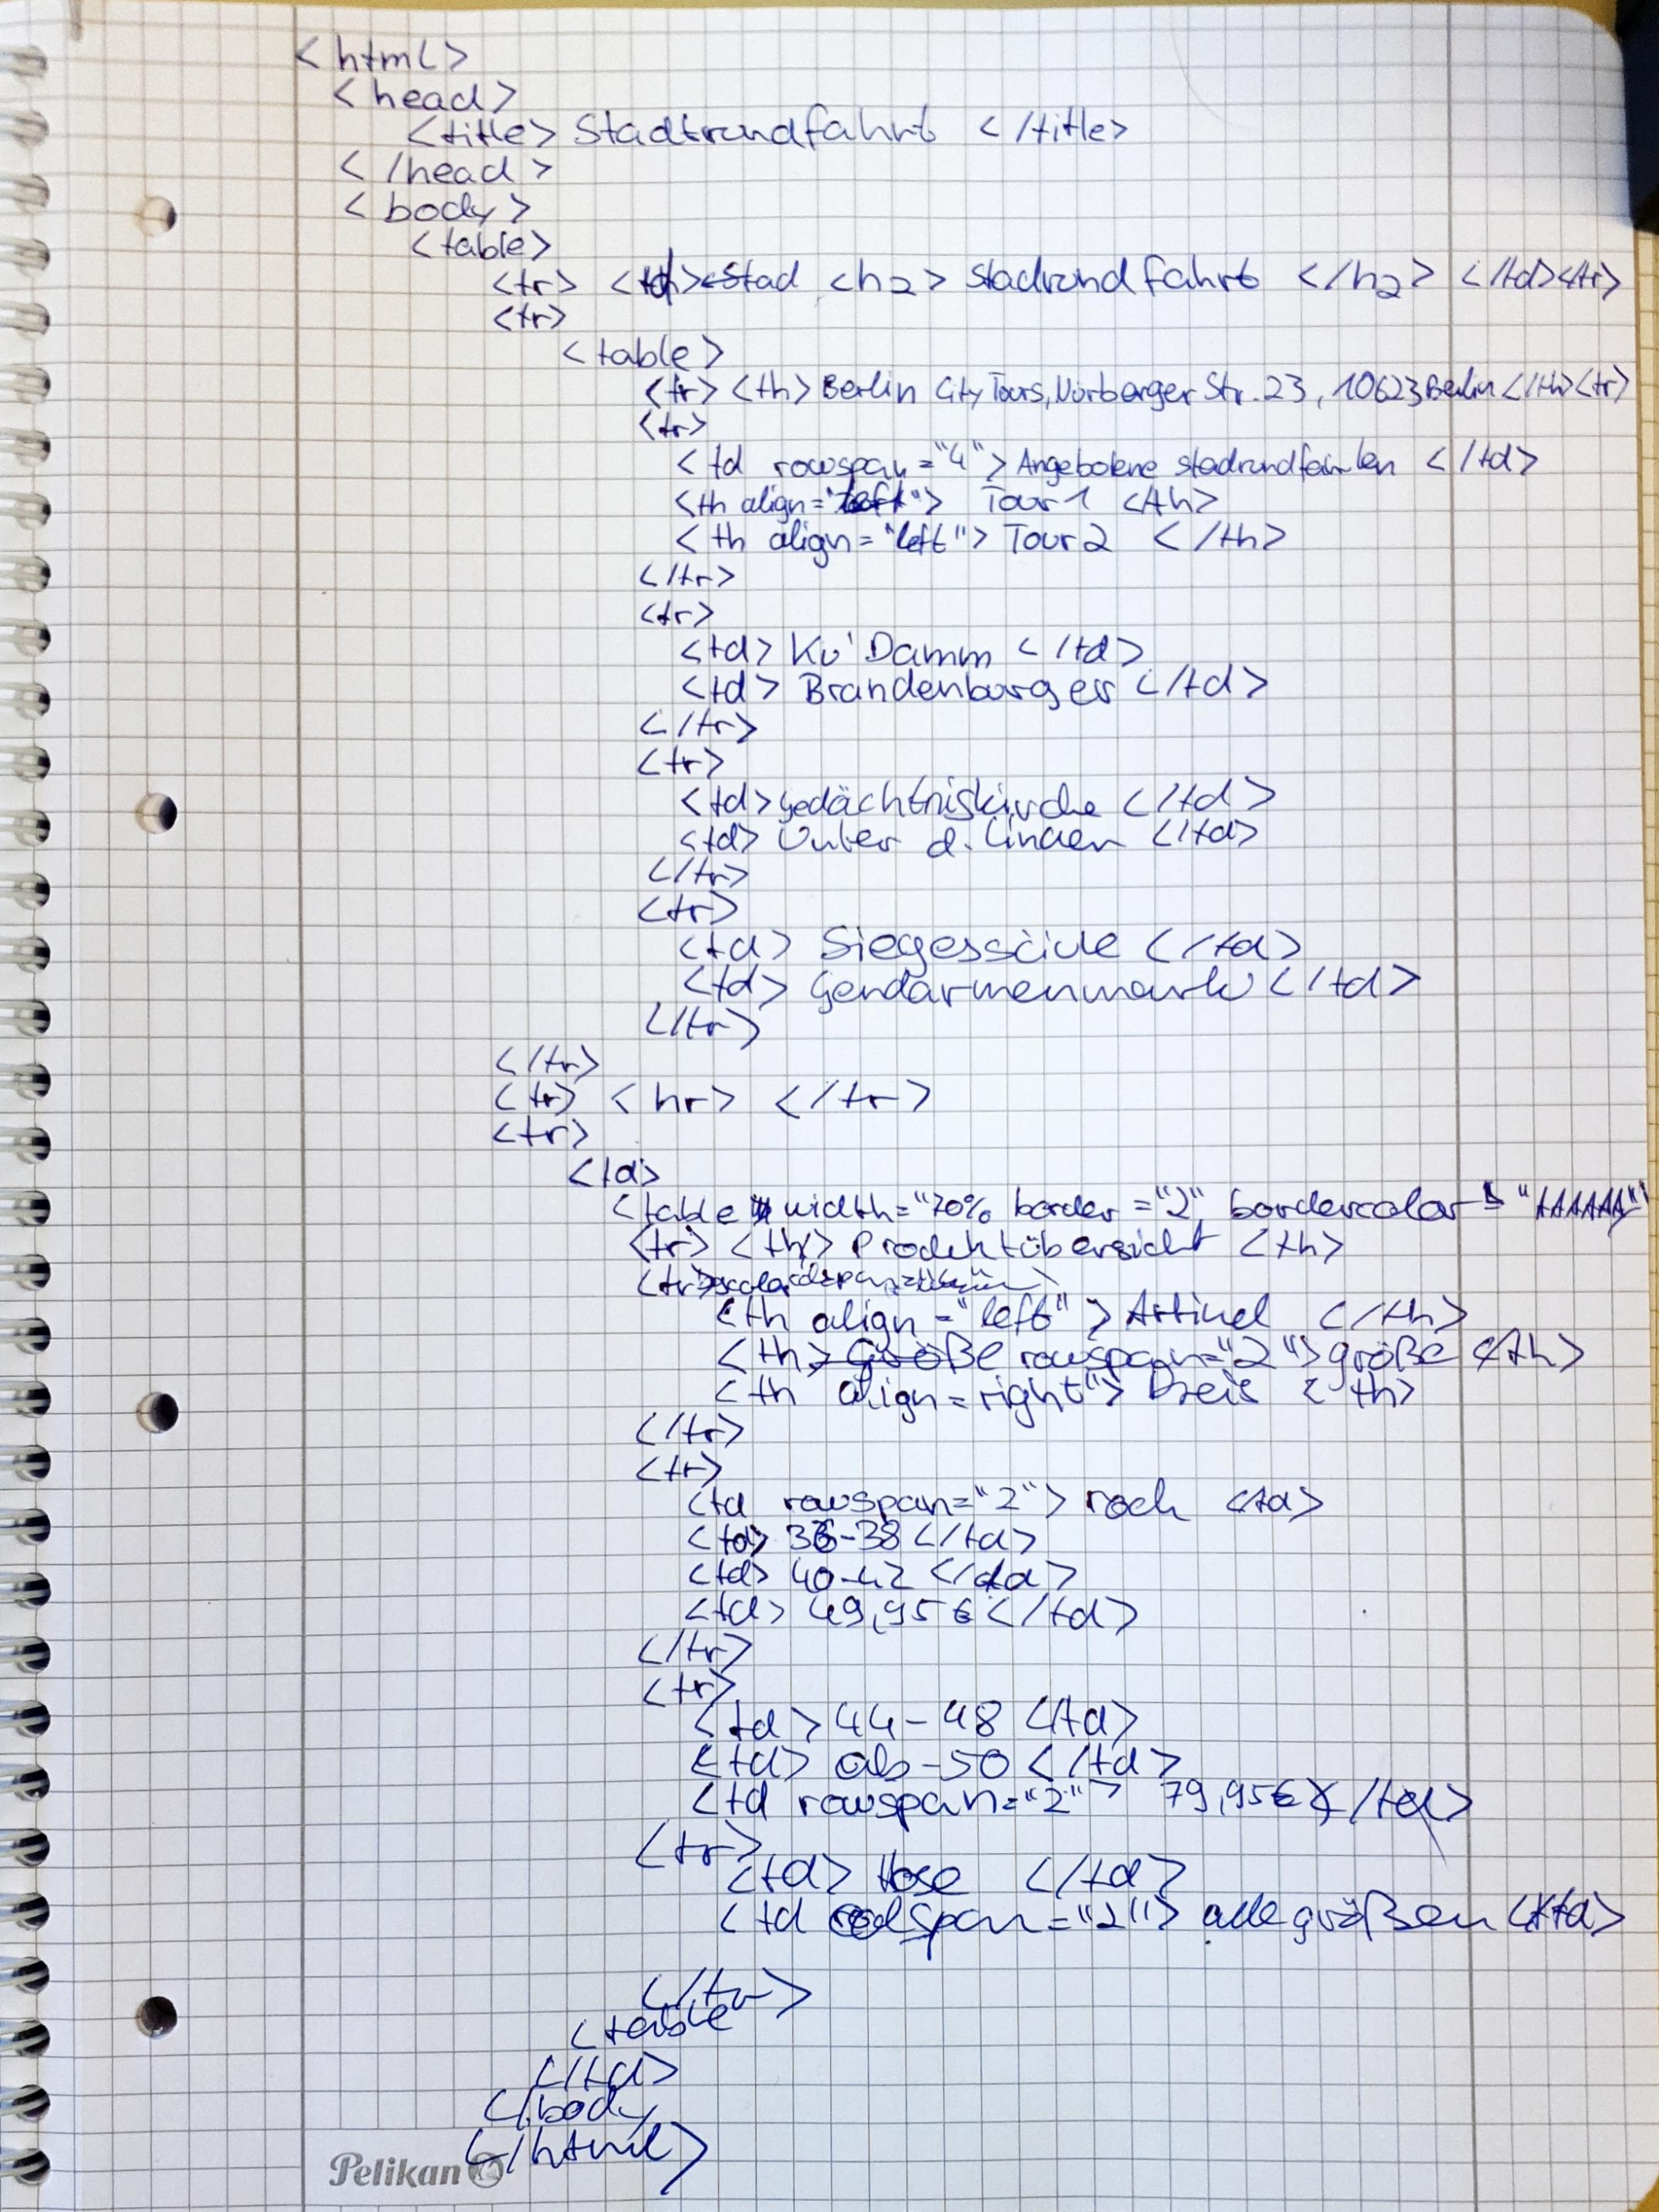 <html>
<head>
<title> Stadtrundfahrt </title>
</head>
<body>
<table>
<tr> <td> Stad <h2> Stadrundfahrt </h2> </td></tr>
<tr>
<table>
<tr> <th> Berlin City Tours, Nürberger Str. 23, 10623 Berlin </th><tr>
<tr>
<td rowspan="4"> Angebotene stadrundfahrten </td>
<th align="left"> Tour 1 </th>
<th align="left"> Tour 2 </th>
</tr>
<tr>
<td> Ku'Damm </td>
<td> Brandenburger </td>
</tr>
<tr>
<td> Gedächtniskirche </td>
<td> Unter d. Linden </td>
</tr>
<tr>
<td> Siegessäule </td>
<td> Gendarmenmarkt </td>
</tr>
</tr>
<tr> <hr> </tr>
<tr>
<td>
<table width="70% border="2" bordercolor= "AAAAAA"
<tr> <th> Produktübersicht <th>
<tr>
<th align="left"> Artikel </th>
<th> Größe rowspan="2"> größe </th>
<th align=right"> Preis < th>
</tr>
<tr>
<td rowspan="2"> rock <td>
<td> 36-38 </td>
<td> 40-42 </td>
<td> 49,95€ </td>
</tr>
<tr>
<td> 44-48 </td>
<td> ab-50 </td>
<td rowspan="2"> 79,95€ </td>
<tr>
<td> Hose </td>
<td colspan="2"> alle größen </td>
</tr>
<table
</td>
</body
</html>
Pelikan